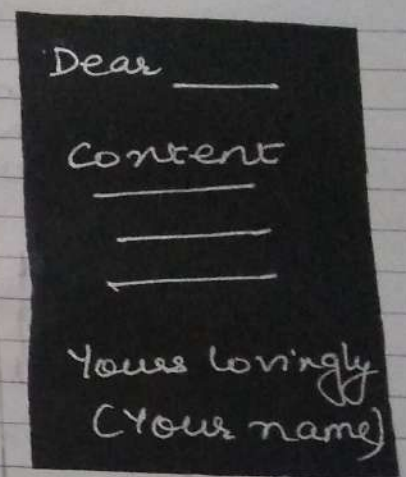 Dear ____
Content
Yours lovingly
(Your name)